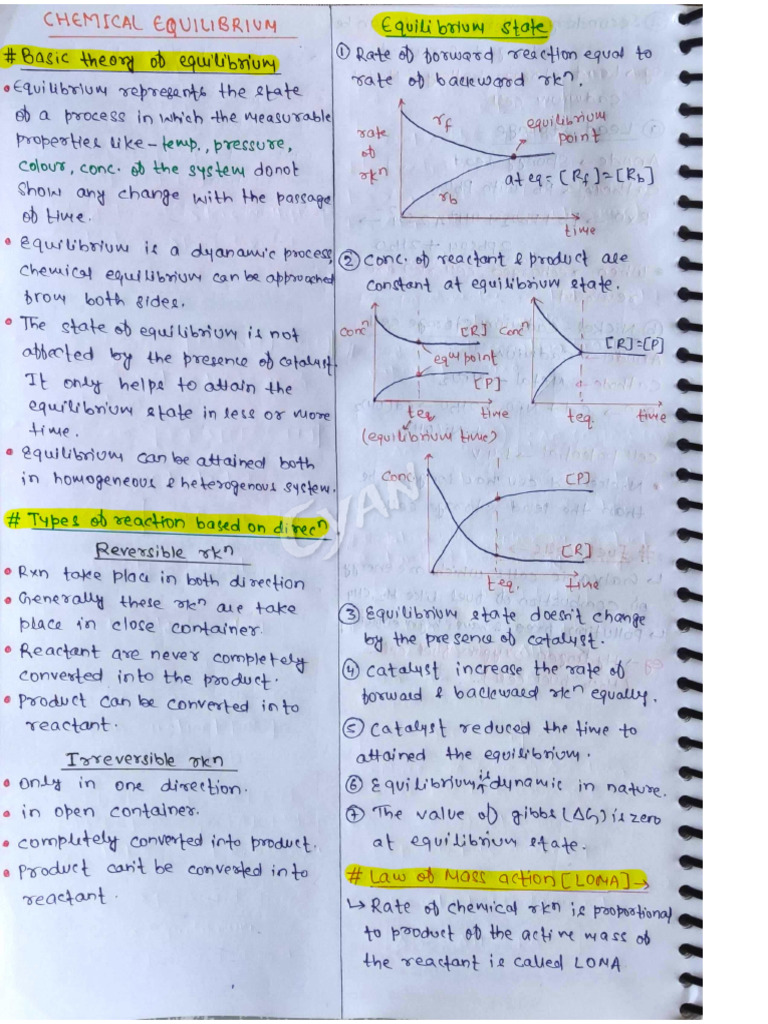 CHEMICAL EQUILIBRIUM
# Basic theory of equilibrium
• Equilibrium represents the state
of a process in which the measurable
properties like - temp., pressure,
colour, conc. of the system donot
show any change with the passage
of time.
• Equilibrium is a dyanamic process,
chemical equilibrium can be approached
from both sides.
• The state of equilibrium is not
affected by the presence of catalyst.
It only helps to attain the
equilibrium state in less or more
time.
• Equilibrium can be attained both
in homogeneous & heterogenous system.
# Types of reaction based on direcⁿ
Reversible rxⁿ
• Rxn take place in both direction
• Generally these rxⁿ are take
place in close container.
• Reactant are never completely
converted into the product.
• Product can be converted into
reactant.
Irreversible rxⁿ
• only in one direction.
• in open container.
• completely converted into product.
• Product can't be converted into
reactant.
Equilibrium state
① Rate of forward reaction equal to
rate of backward rxⁿ.
rate
of
rxⁿ
rf
equilibrium
point
at eq = [Rf] = [Rb]
rb
time
② Conc. of reactant & product are
constant at equilibrium state.
concⁿ
[R]
equi point
[P]
teq
time
(equilibrium time)
concⁿ
[R]=[P]
teq.
time
conc.
[P]
[R]
teq.
time
③ Equilibrium state doesn't change
by the presence of catalyst.
④ Catalyst increase the rate of
forward & backward rxⁿ equally.
⑤ Catalyst reduced the time to
attained the equilibrium.
⑥ Equilibrium is dynamic in nature.
⑦ The value of gibbs (ΔG) is zero
at equilibrium state.
# Law of Mass action [LOMA] →
↳ Rate of chemical rxⁿ is proportional
to product of the active mass of
the reactant is called LOMA
CYAN